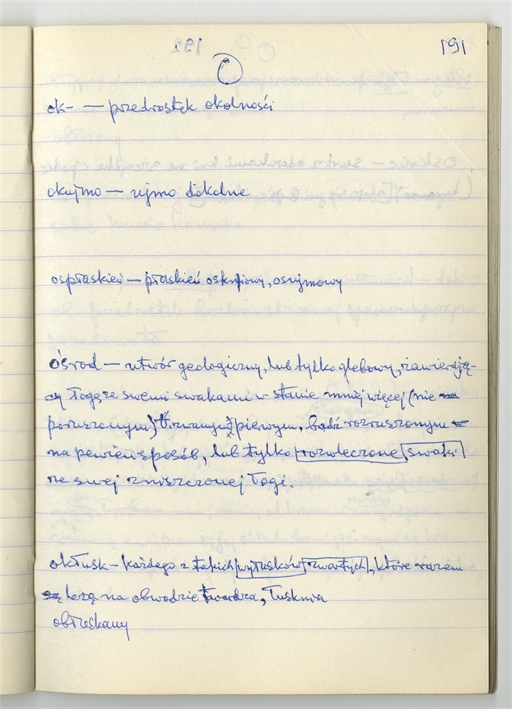 191
O
ok- — przedrostek okolności
okujmo — ujmo dokolne
ospłaskień — płaskień oskupiowy, osujmowy
ośrod — utwór geologiczny, lub tylko glebowy, zawierają-
cy łogę ze swemi swakami w stanie mniej więcej (nie
poruszonym) t.zwanym pierwym, bądź rozruszonym
na pewien sposób, lub tylko rozwleczone swaki
ze swej zniszczonej łogi.
okłusk — każdego z takich wyłusków zwartych, które razem
leżą na obwodzie twardza, łusknia
obłuskany